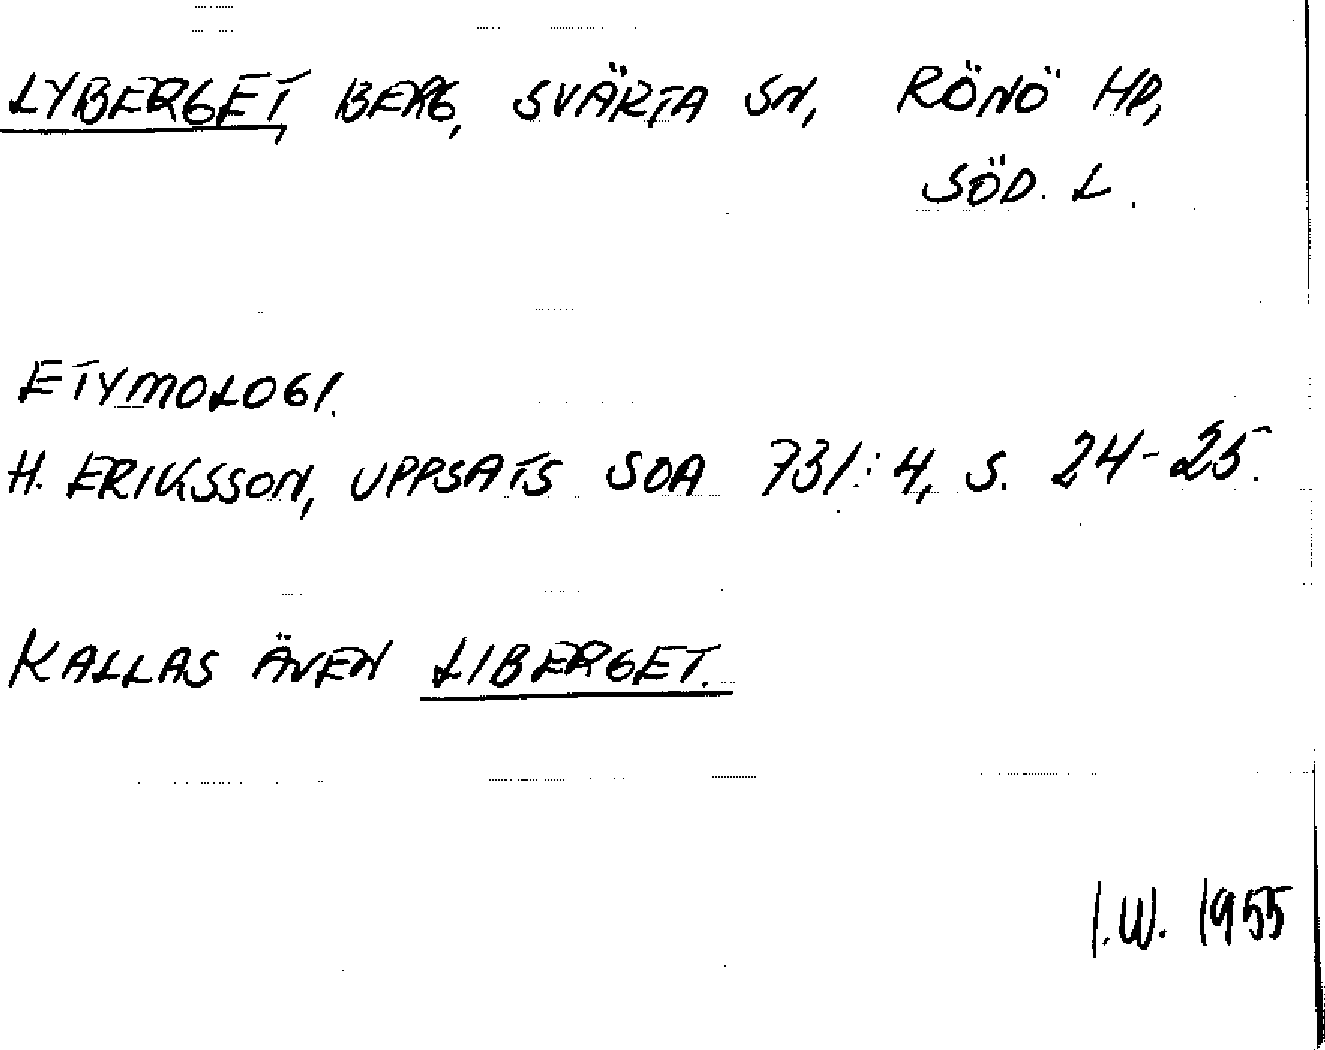 LYBERGET, BERG, SVÄRTA SN, RÖNÖ HD,
SÖD. L.
ETYMOLOGI.
H. ERIKSSON, UPPSATS SOA 731:4, S. 24-25.
KALLAS ÄVEN LIBERGET.
I.W. 1955